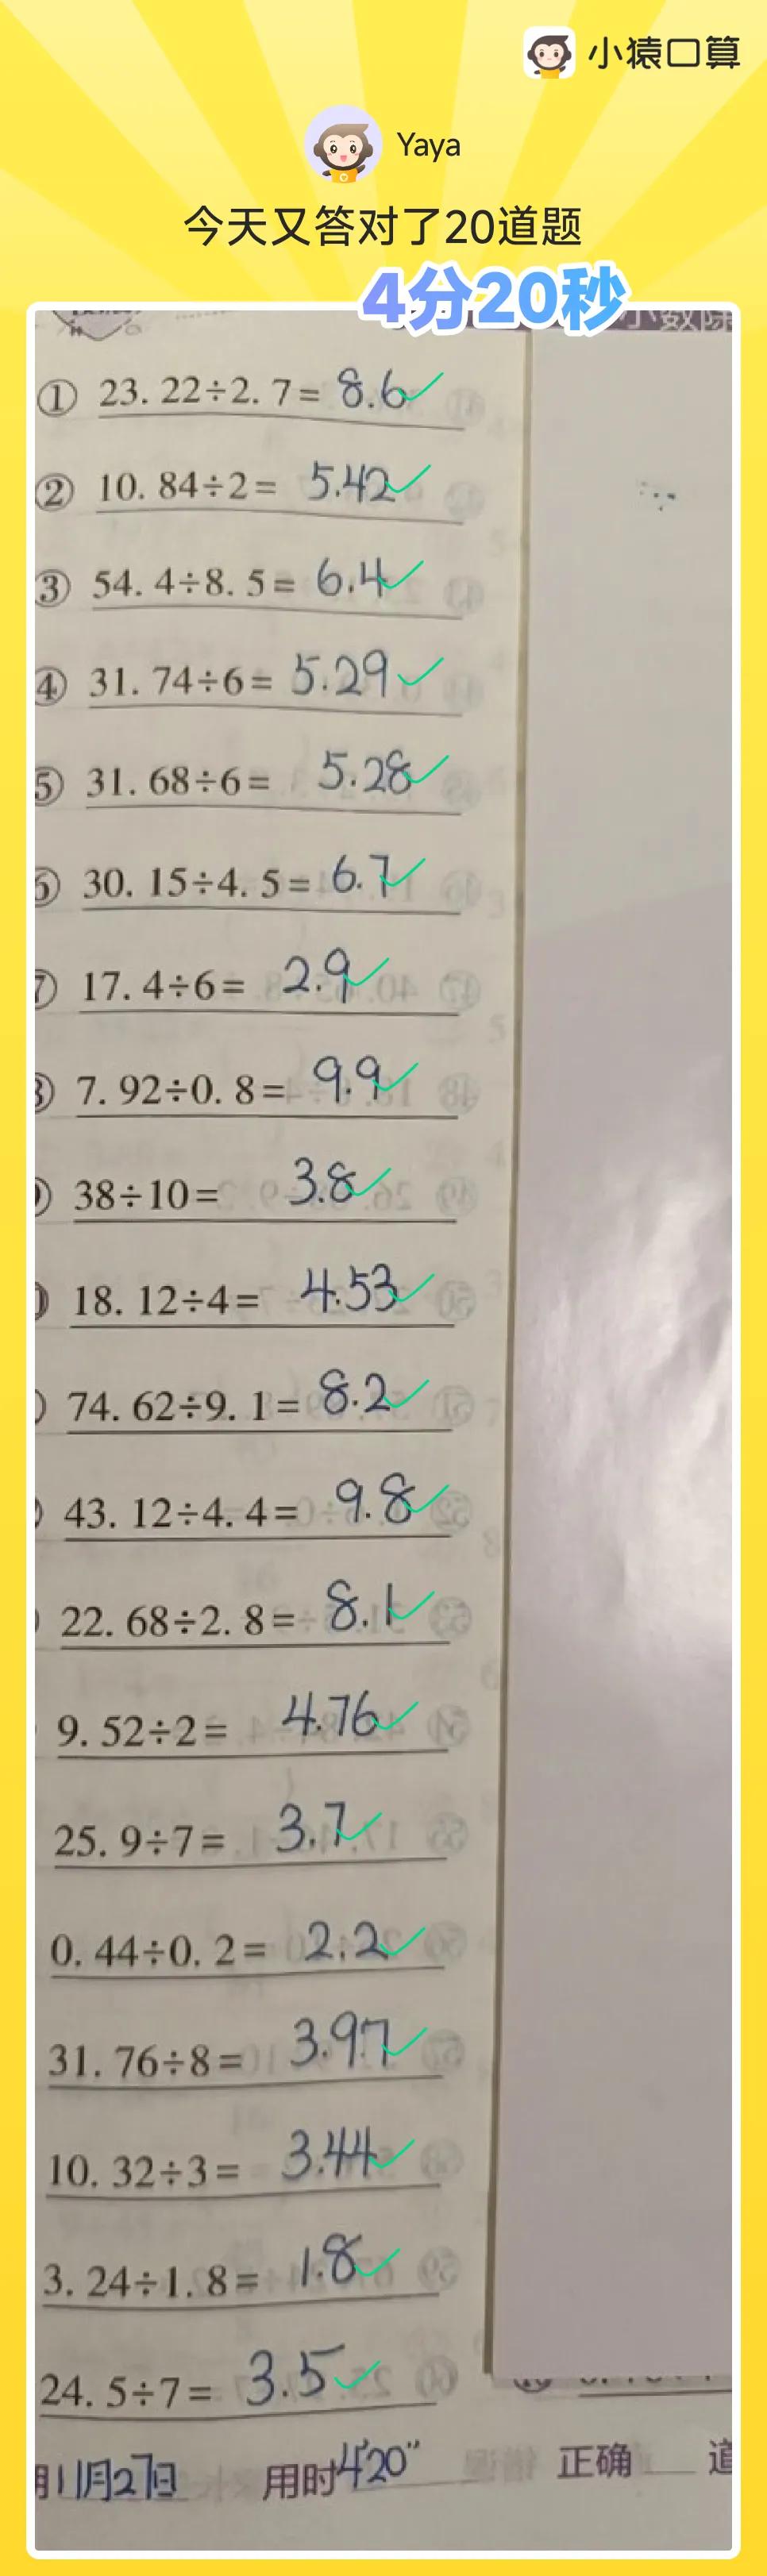 小猿口算
Yaya
今天又答对了20道题
4分20秒
小数除
① 23.22÷2.7= 8.6
② 10.84÷2= 5.42
③ 54.4÷8.5= 6.4
④ 31.74÷6= 5.29
⑤ 31.68÷6= 5.28
⑥ 30.15÷4.5= 6.7
⑦ 17.4÷6= 2.9
⑧ 7.92÷0.8= 9.9
38÷10= 3.8
18.12÷4= 4.53
74.62÷9.1= 8.2
43.12÷4.4= 9.8
22.68÷2.8= 8.1
9.52÷2= 4.76
25.9÷7= 3.7
0.44÷0.2= 2.2
31.76÷8= 3.97
10.32÷3= 3.44
3.24÷1.8= 1.8
24.5÷7= 3.5
期11月27日 用时4'20" 正确 道